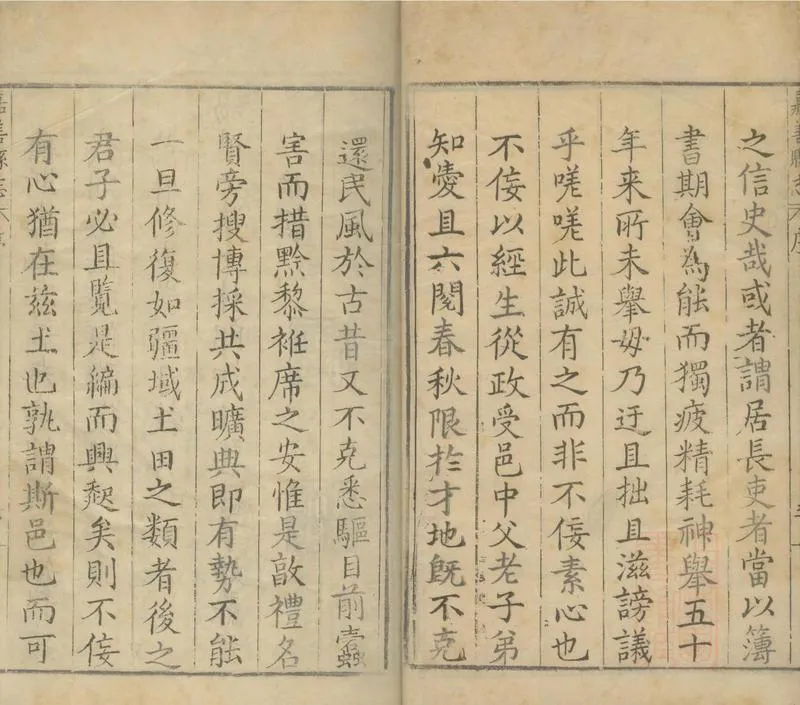 之信史哉或者謂居長吏者當以簿
書期會為能而獨疲精耗神舉五十
年来所未舉毋乃迂且拙且滋謗議
乎嗟嗟此誠有之而非不佞素心也
不佞以經生從政受邑中父老子弟
知愛且六閱春秋限於才地既不克
還民風於古昔又不克悉驅目前蠹
害而措黔黎袵席之安惟是敦禮名
賢旁搜博採共成曠典即有勢不能
一旦修復如疆域土田之類者後之
君子必且覽是編而興起矣則不佞
有心猶在玆土也孰謂斯邑也而可
嘉善縣志